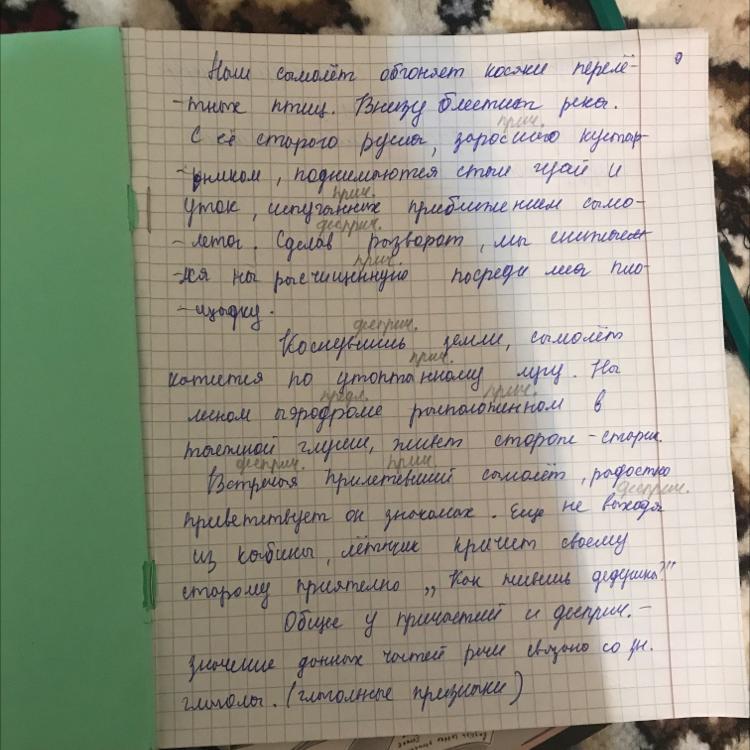 Наш самолёт обгоняет косяки перелё-
-тных птиц. Внизу блестит река.
прич.
С её старого русла, заросшего кустар-
-ником, поднимаются стаи гусей и
прич.
уток, испуганных приближением само-
дееприч.
-лета. Сделав разворот, мы снижаем-
прич.
-ся на расчищенную посреди леса пло-
-щадку.
дееприч.
Коснувшись земли, самолёт
прич.
катится по утоптанному лугу. На
предл. прич.
лесном аэродроме расположенном в
таежной глуши, живёт сторож-старик.
дееприч. прич.
Встречая прилетевший самолёт, радостно
дееприч.
приветствует он знакомых. Еще не выходя
из кабины, лётчик кричит своему
старому приятелю „Как живёшь дедушка?"
Общее у причастий и дееприч. -
значение данных частей речи связано со зн.
глагола. (глагольные признаки)